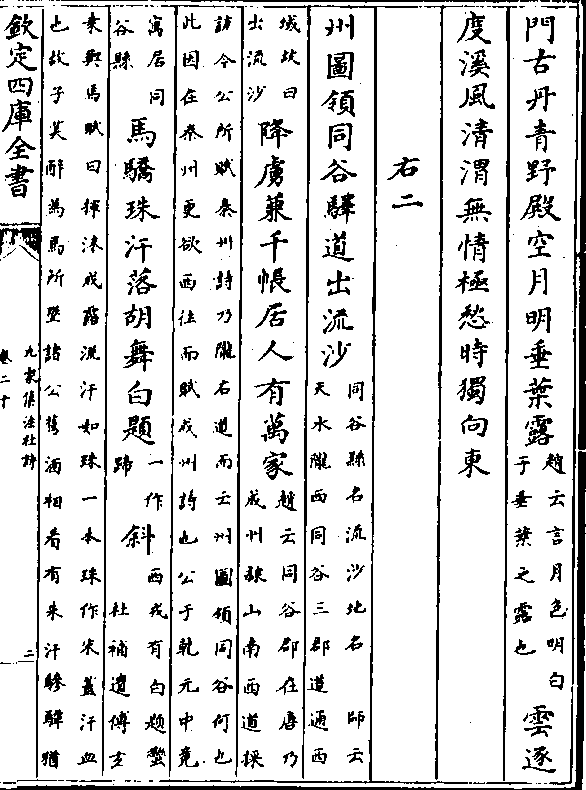 門古丹青野殿空月明垂葉露
趙云言月色明白
于垂葉之露也
雲逐
度溪風清渭無情極愁時獨向東
右二
州圖領同谷驛道出流沙
同谷縣名流沙地名 師云
天水隴西同谷三郡道通西
域故曰
出流沙
降虜兼千帳居人有萬家
趙云同谷郡在唐乃
成州隸山南西道採
訪今公所賦秦州詩乃隴右道而云州圖領同谷何也
此因在秦州更欲西往而賦成州詩也公于乾元中竟
寓居同
谷縣
馬驕珠汗落胡舞白題
一作
蹄
斜
西戎有白題蠻
杜補遺傅玄
乘輿馬賦曰揮沫成流汗如珠一本珠作朱蓋汗血
也故子美醉為馬所墜諸公攜酒相看有朱汗驂驔猶
欽定四庫全書
九家集注杜詩
卷二十
二